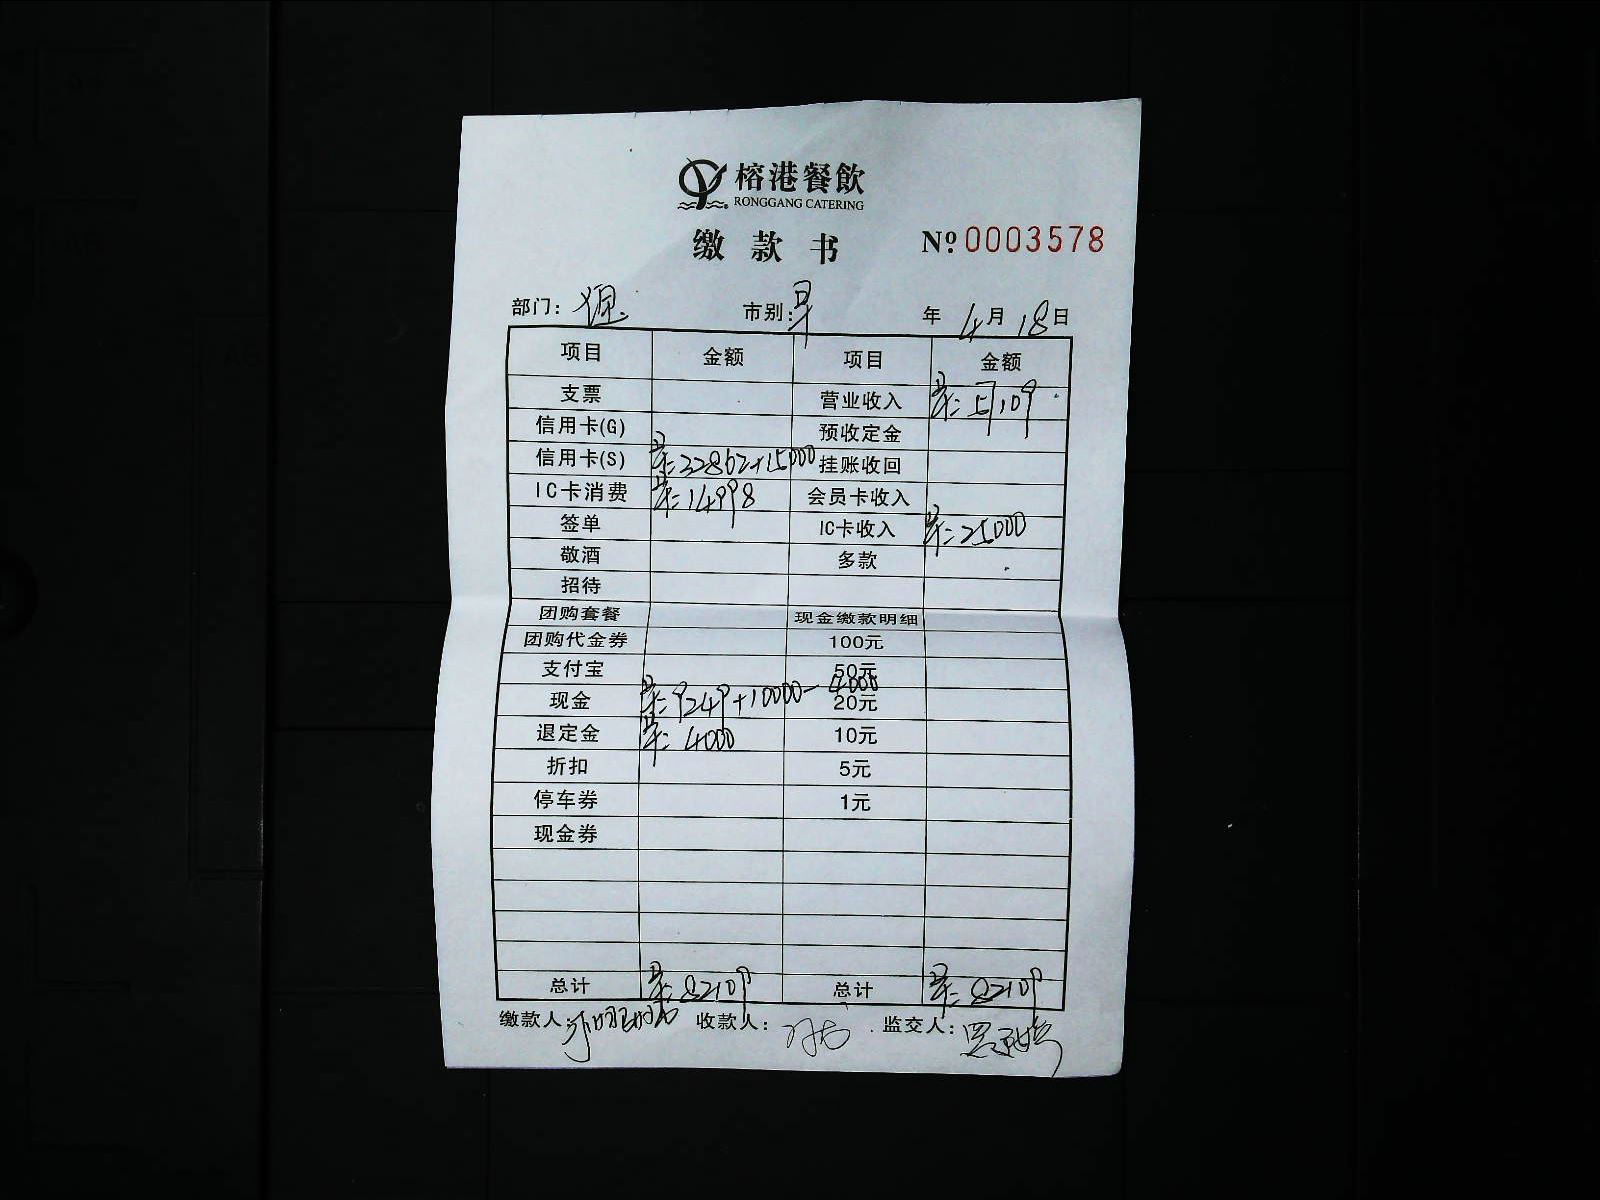 榕港餐飲
RONGGANG CATERING
缴款书 № 0003578
部门: 市别:早 年 4月 18日
项目 金额 项目 金额
支票 营业收入 早:57109
信用卡(G) 预收定金
信用卡(S) 早:32862+15000 挂账收回
IC卡消费 早:14998 会员卡收入
签单 IC卡收入 早:25000
敬酒 多款
招待
团购套餐 现金缴款明细
团购代金券 100元
支付宝 50元
现金 早:9249+10000-4000 20元
退定金 早:4000 10元
折扣 5元
停车券 1元
现金券
总计 早:82109 总计 早:82109
缴款人: 收款人: 监交人: